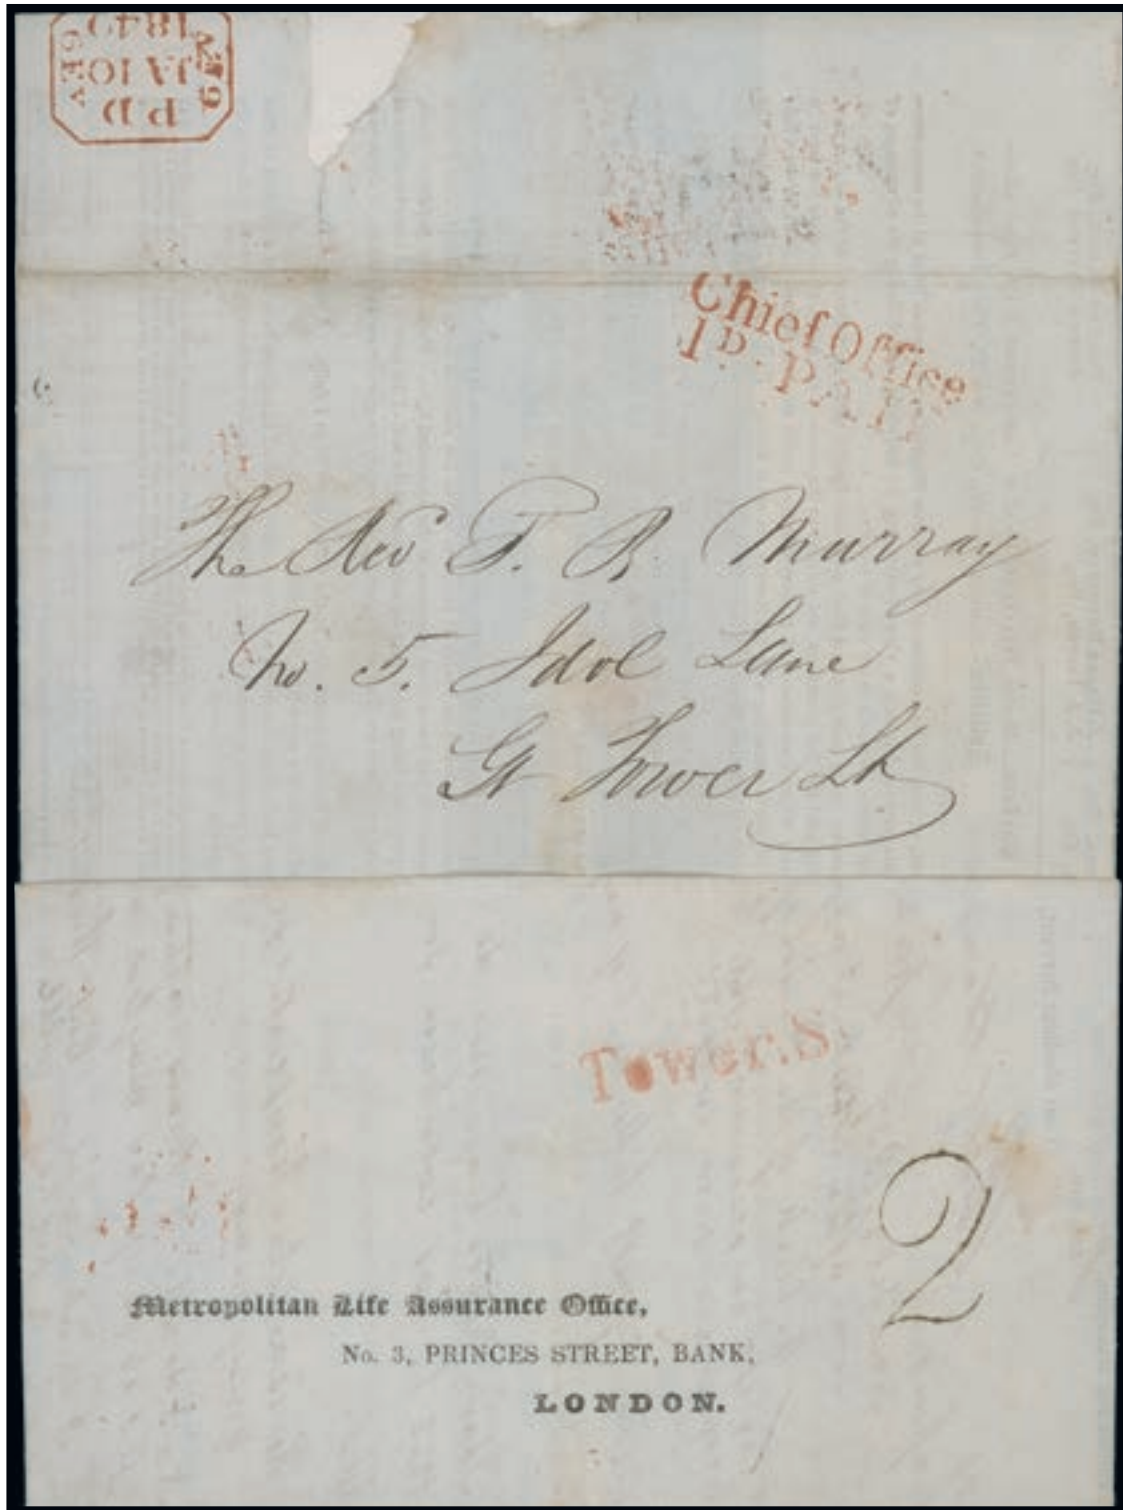 PD
JA 10
1840
Chief Office
1D. PAID
The Rev T. B. Murray
No. 5. Idol Lane
Gt Tower St
Tower.S
2
Metropolitan Life Assurance Office,
No. 3, PRINCES STREET, BANK,
LONDON.